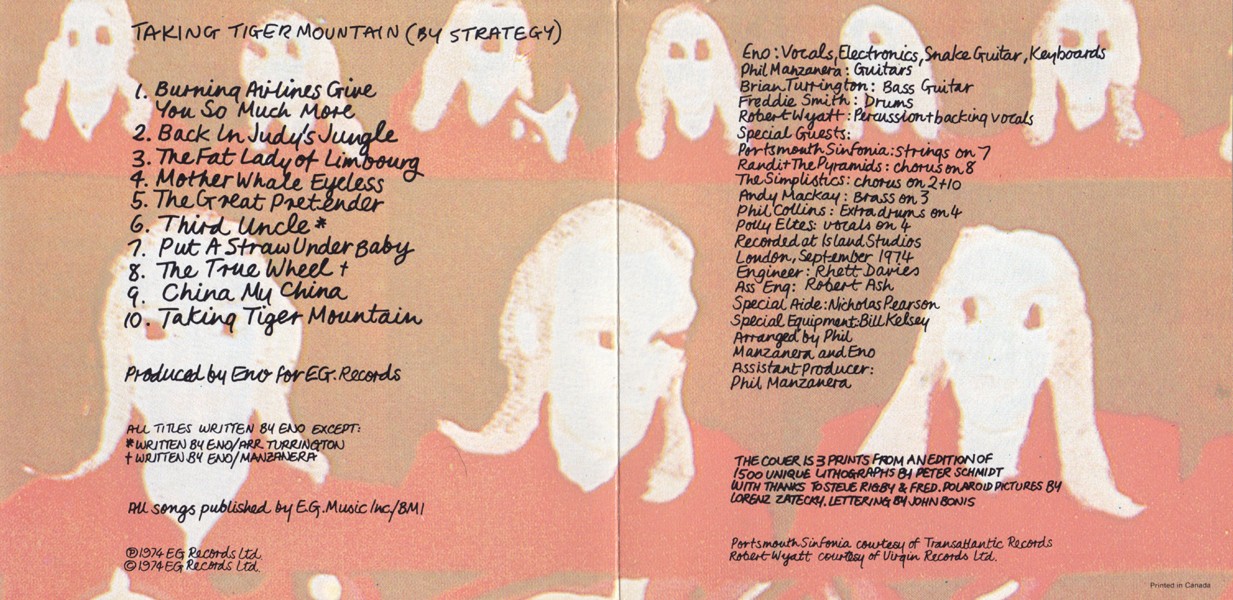 TAKING TIGER MOUNTAIN (BY STRATEGY)
1. Burning Airlines Give
You So Much More
2. Back In Judy's Jungle
3. The Fat Lady of Limbourg
4. Mother Whale Eyeless
5. The Great Pretender
6. Third Uncle *
7. Put A Straw Under Baby
8. The True Wheel †
9. China My China
10. Taking Tiger Mountain
Produced by Eno for E.G. Records
ALL TITLES WRITTEN BY ENO EXCEPT:
* WRITTEN BY ENO/ARR TURRINGTON
† WRITTEN BY ENO/MANZANERA
All songs published by E.G. Music Inc/BMI
℗ 1974 EG Records Ltd.
© 1974 EG Records Ltd.
Eno: Vocals, Electronics, Snake Guitar, Keyboards
Phil Manzanera: Guitars
Brian Turrington: Bass Guitar
Freddie Smith: Drums
Robert Wyatt: Percussion + backing vocals
Special Guests:
Portsmouth Sinfonia: strings on 7
Randi + The Pyramids: chorus on 8
The Simplistics: chorus on 2+10
Andy Mackay: Brass on 3
Phil Collins: Extra drums on 4
Polly Eltes: vocals on 4
Recorded at Island Studios
London, September 1974
Engineer: Rhett Davies
Ass Eng: Robert Ash
Special Aide: Nicholas Pearson
Special Equipment: Bill Kelsey
Arranged by Phil
Manzanera and Eno
Assistant Producer:
Phil Manzanera
THE COVER IS 3 PRINTS FROM AN EDITION OF
1500 UNIQUE LITHOGRAPHS BY PETER SCHMIDT
WITH THANKS TO STEVE RIGBY & FRED. POLAROID PICTURES BY
LORENZ ZATECKY. LETTERING BY JOHN BONIS
Portsmouth Sinfonia courtesy of Transatlantic Records
Robert Wyatt courtesy of Virgin Records Ltd.
Printed in Canada